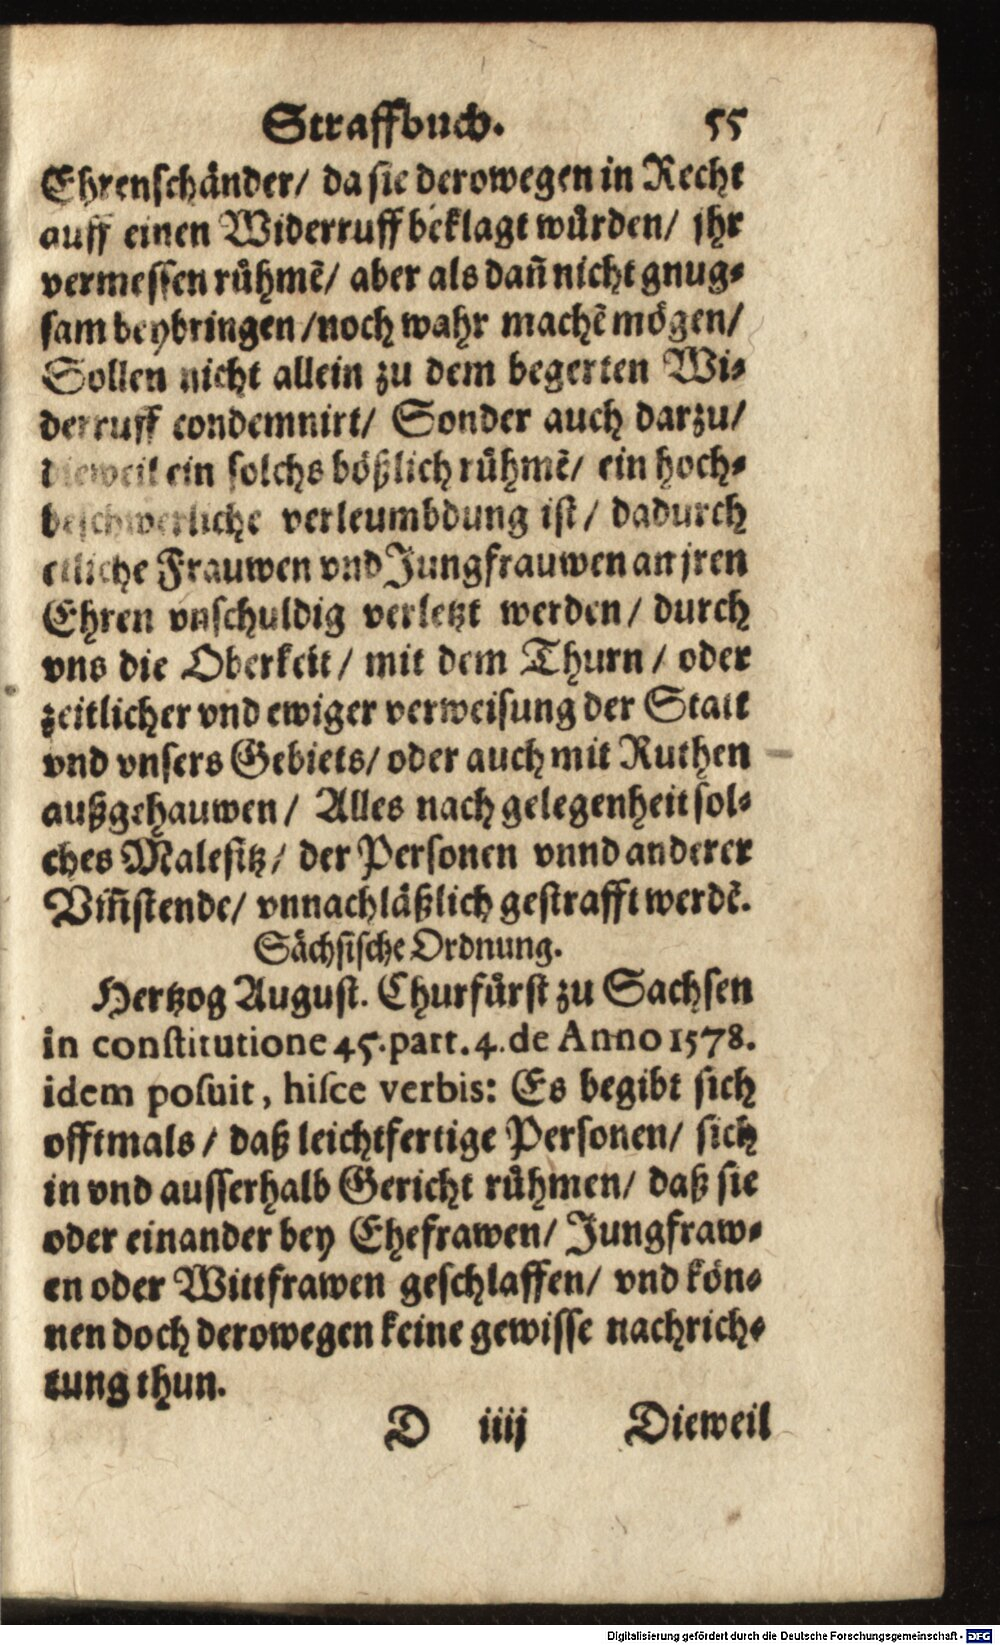 Straffbuch. 55
Ehrenschänder/ da sie derowegen in Recht
auff einen Widerruff beklagt würden/ jhr
vermessen rühmē/ aber als dañ nicht gnug-
sam beybringen/ noch wahr machē mögen/
Sollen nicht allein zu dem begerten Wi-
derruff condemnirt/ Sonder auch darzu/
dieweil ein solchs bößlich rühmē/ ein hoch-
beschwerliche verleumbdung ist/ dadurch
etliche Frauwen vnd Jungfrauwen an jren
Ehren vnschuldig verletzt werden/ durch
vns die Oberkeit/ mit dem Thurn/ oder
zeitlicher vnd ewiger verweisung der Statt
vnd vnsers Gebiets/ oder auch mit Ruthen
außgehauwen/ Alles nach gelegenheit sol-
ches Malefitz/ der Personen vnnd anderer
Vm̃stende/ vnnachläßlich gestrafft werdē.
Sächsische Ordnung.
Hertzog August. Churfürst zu Sachsen
in constitutione 45. part. 4. de Anno 1578.
idem posuit, hisce verbis: Es begibt sich
offtmals/ daß leichtfertige Personen/ sich
in vnd ausserhalb Gericht rühmen/ daß sie
oder einander bey Ehefrawen/ Jungfraw-
en oder Wittfrawen geschlaffen/ vnd kön-
nen doch derowegen keine gewisse nachrich-
tung thun.
D iiij Dieweil
Digitalisierung gefördert durch die Deutsche Forschungsgemeinschaft - DFG